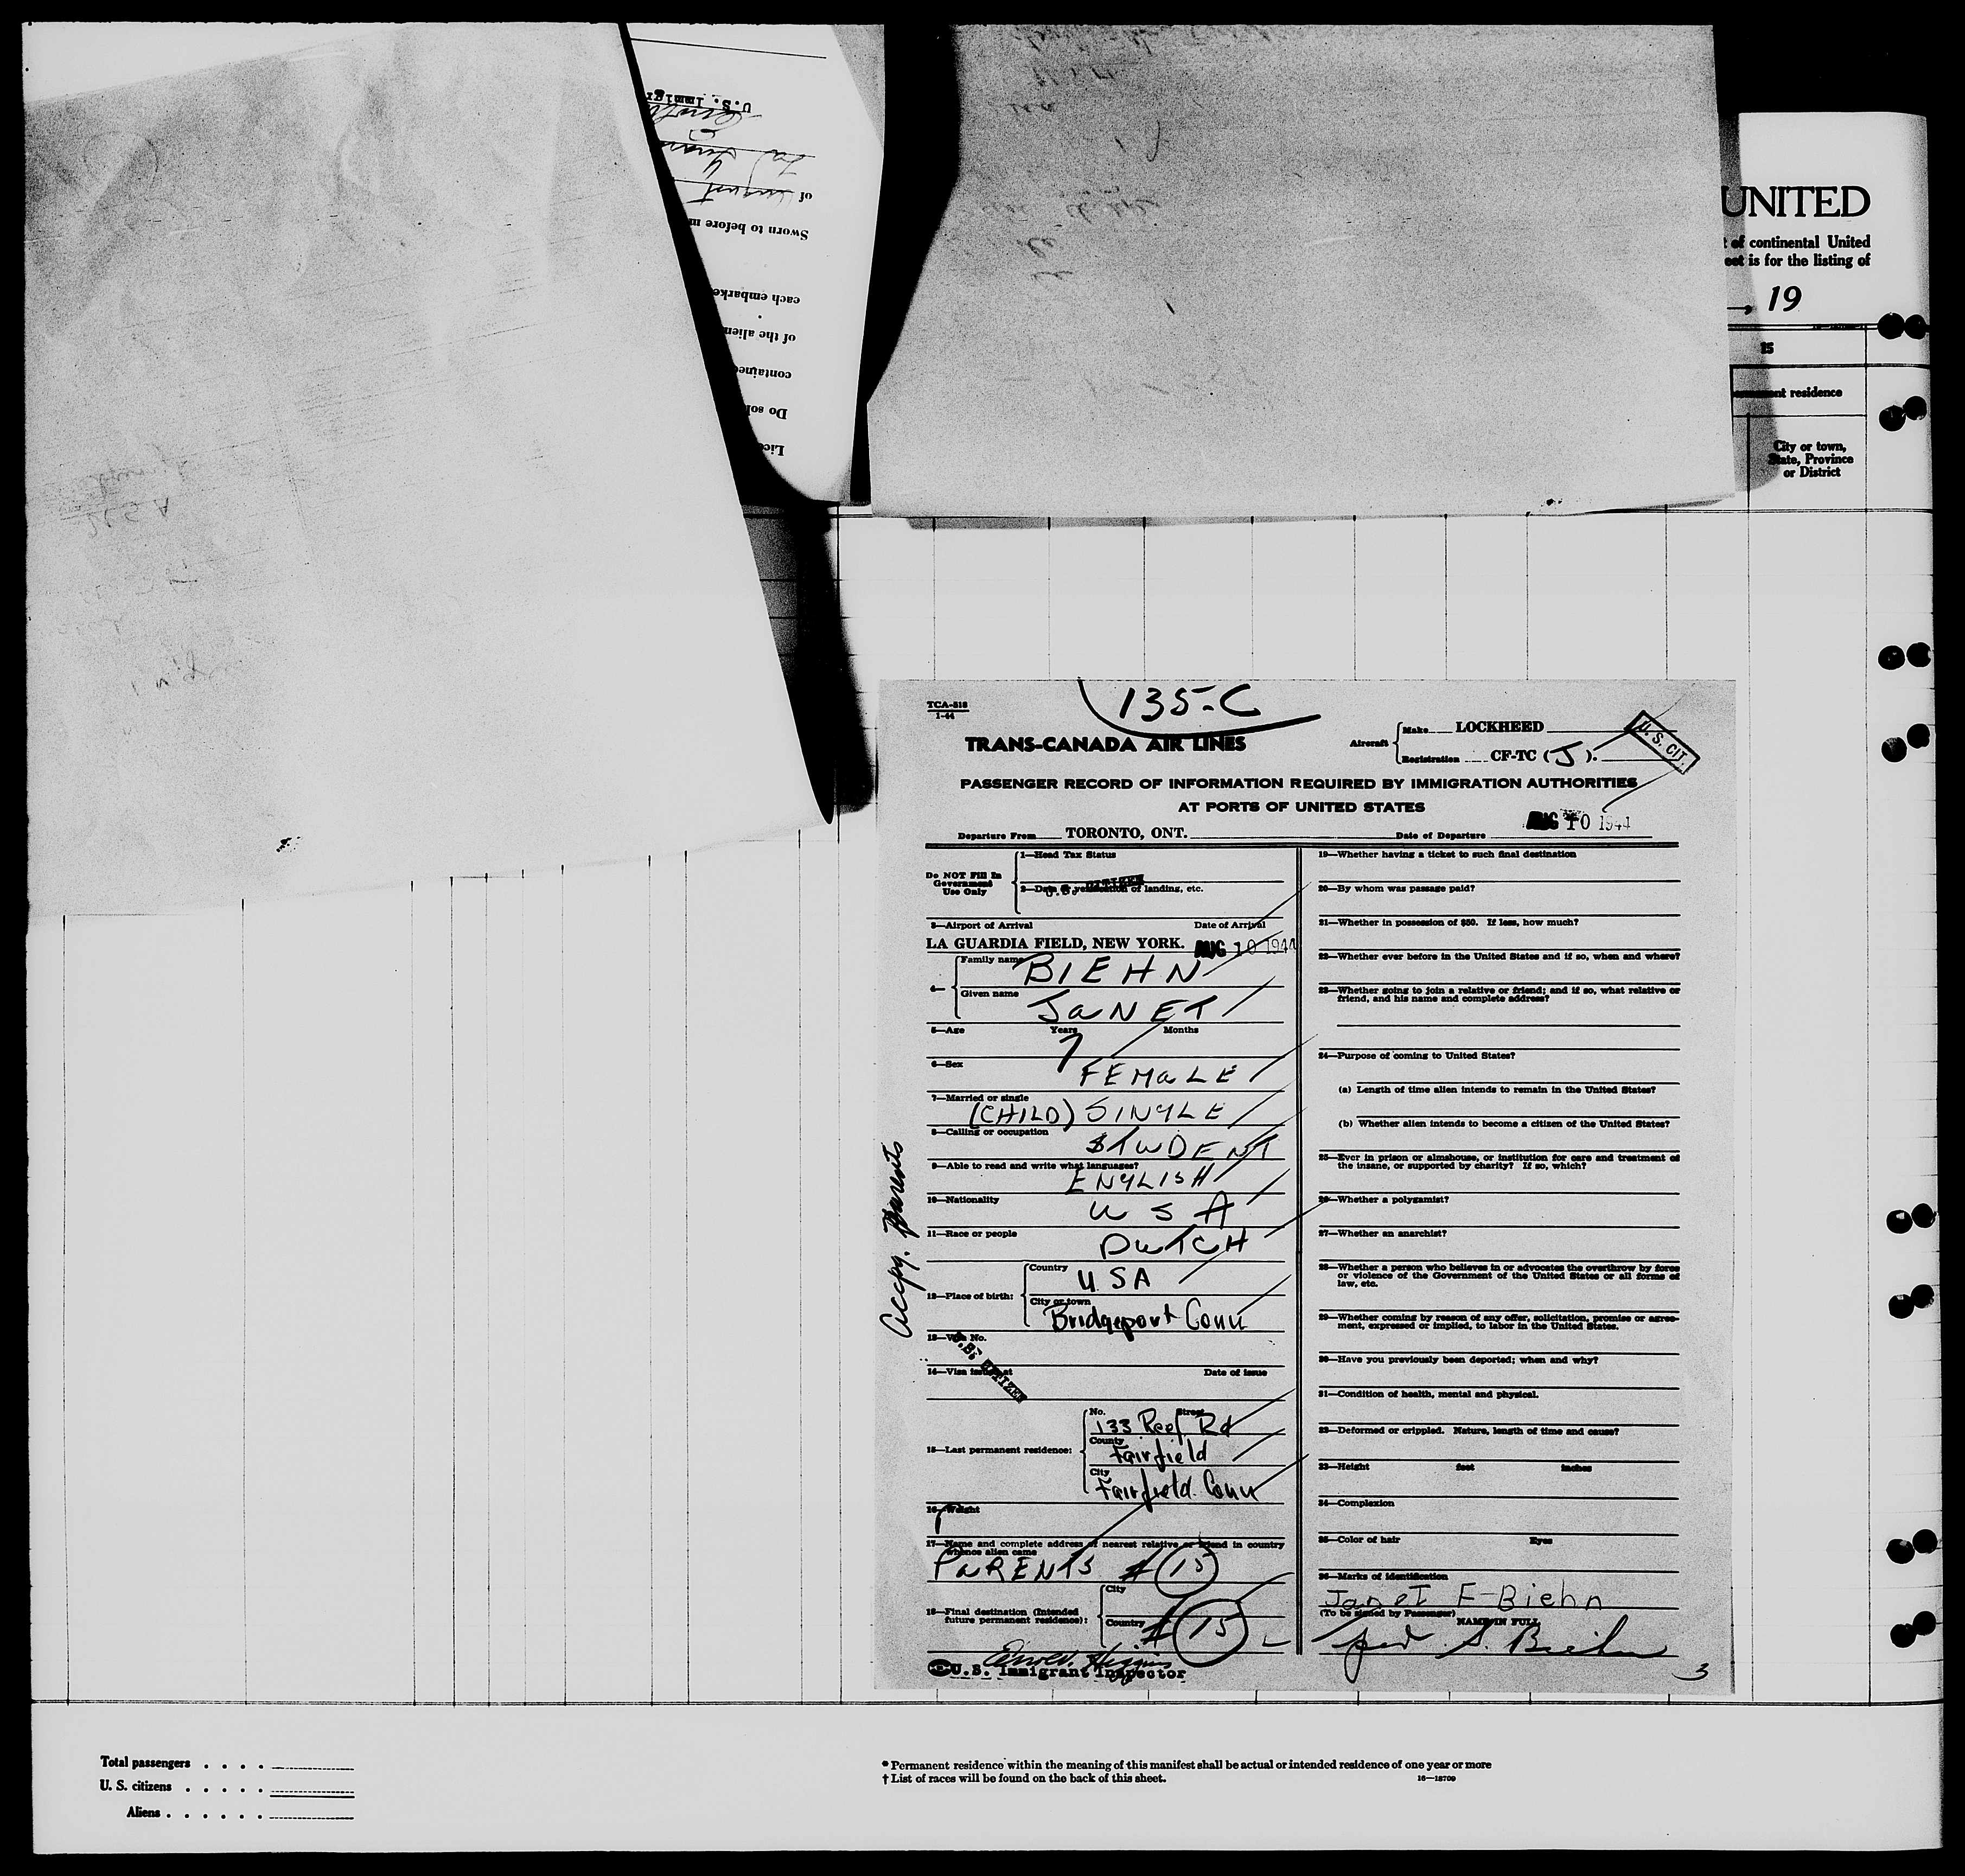 U.S. Immigr
of August
Sworn to before m
each embarke
of the alien
contained
Do sol
Lice
UNITED
t of continental United
eet is for the listing of
, 19
15
residence
City or town,
State, Province
or District
135-C
TCA-518
1-44
TRANS-CANADA AIR LINES
Aircraft
Make LOCKHEED
Registration CF-TC (J).
U. S. CIT.
PASSENGER RECORD OF INFORMATION REQUIRED BY IMMIGRATION AUTHORITIES
AT PORTS OF UNITED STATES
Departure From TORONTO, ONT. Date of Departure AUG 10 1944
Do NOT Fill In
Government
Use Only
1—Head Tax Status
2—Date of verification of landing, etc.
U.S. CITIZEN
3—Airport of Arrival Date of Arrival
LA GUARDIA FIELD, NEW YORK. AUG 10 1944
4—
Family name BIEHN
Given name JaNET
5—Age Years 7 Months
6—Sex FEMaLE
7—Married or single
(CHILD) SINGLE
8—Calling or occupation STUDENT
9—Able to read and write what languages?
ENGLISH
10—Nationality USA
11—Race or people DUTCH
12—Place of birth:
Country USA
City or town
Bridgeport Conn
13—Visa No.
14—Visa issued at Date of issue
CITIZEN
15—Last permanent residence:
No. Street
133 Reef Rd
County Fairfield
City Fairfield Conn
16—Weight
17—Name and complete address of nearest relative or friend in country
whence alien came
PaRENTS # 15
18—Final destination (Intended
future permanent residence):
City
Country # 15
U.S. Immigrant Inspector
Accpy. Parents
19—Whether having a ticket to such final destination
20—By whom was passage paid?
21—Whether in possession of $50. If less, how much?
22—Whether ever before in the United States and if so, when and where?
23—Whether going to join a relative or friend; and if so, what relative or
friend, and his name and complete address?
24—Purpose of coming to United States?
(a) Length of time alien intends to remain in the United States?
(b) Whether alien intends to become a citizen of the United States?
25—Ever in prison or almshouse, or institution for care and treatment of
the insane, or supported by charity? If so, which?
26—Whether a polygamist?
27—Whether an anarchist?
28—Whether a person who believes in or advocates the overthrow by force
or violence of the Government of the United States or all forms of
law, etc.
29—Whether coming by reason of any offer, solicitation, promise or agree-
ment, expressed or implied, to labor in the United States.
30—Have you previously been deported; when and why?
31—Condition of health, mental and physical.
32—Deformed or crippled. Nature, length of time and cause?
33—Height feet inches
34—Complexion
35—Color of hair Eyes
36—Marks of identification
Janet F Biehn
(To be signed by Passenger) NAME IN FULL
S. Biehn
3
Total passengers . . . .
U. S. citizens . . . . .
Aliens . . . . . .
* Permanent residence within the meaning of this manifest shall be actual or intended residence of one year or more
† List of races will be found on the back of this sheet. 16—18709